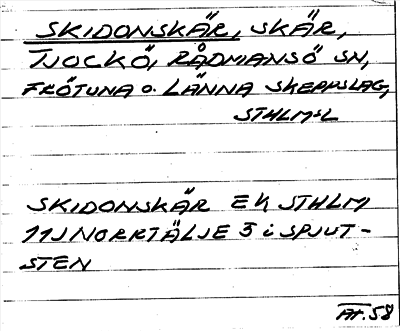 SKIDONSKÄR, SKÄR,
TJOCKÖ, RÅDMANSÖ SN,
FRÖTUNA o. LÄNNA SKEPPSLAG,
STHLMSL
SKIDONSKÄR EK STHLM
11J NORRTÄLJE 3 i SPJUT-
STEN
AH.58